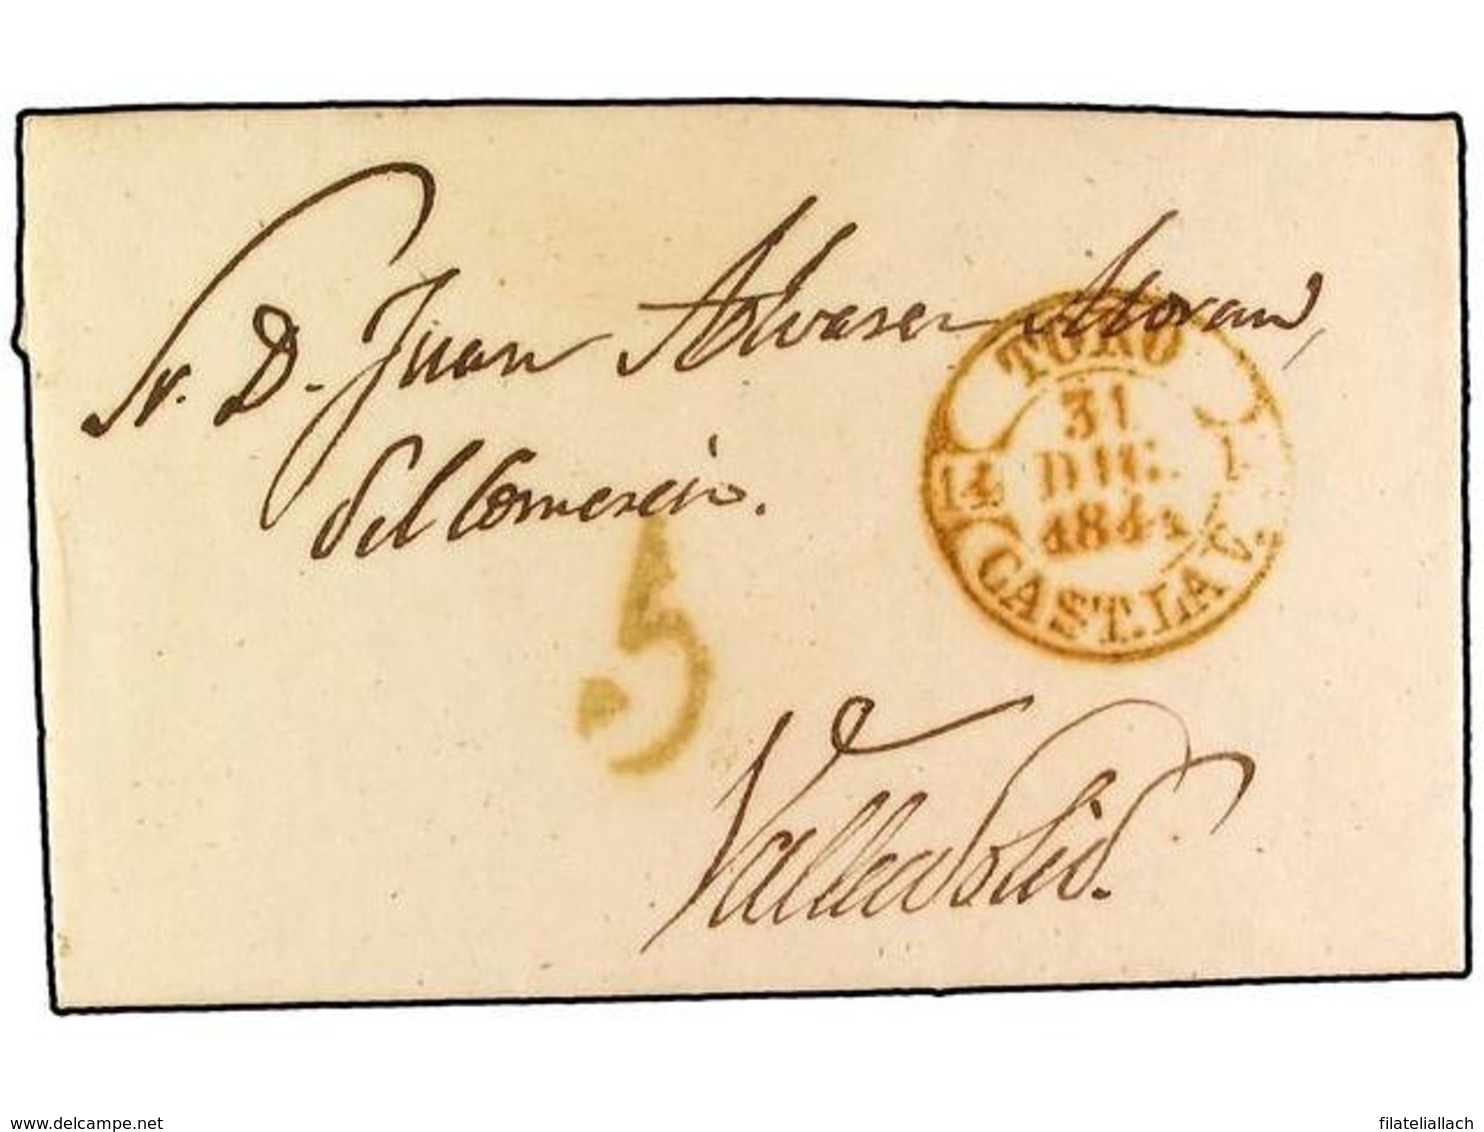 Sr. D. Juan Alvarez Moran,
del Comercio.
TORO
31
DIC.
1844
14
CAST. LA V.
5
Valladolid.
www.delcampe.net
filateliallach